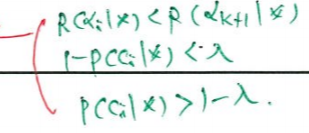 R(αᵢ|x) < R(αₖ₊₁|x)
1-P(Cᵢ|x) < λ
P(Cᵢ|x) > 1-λ.